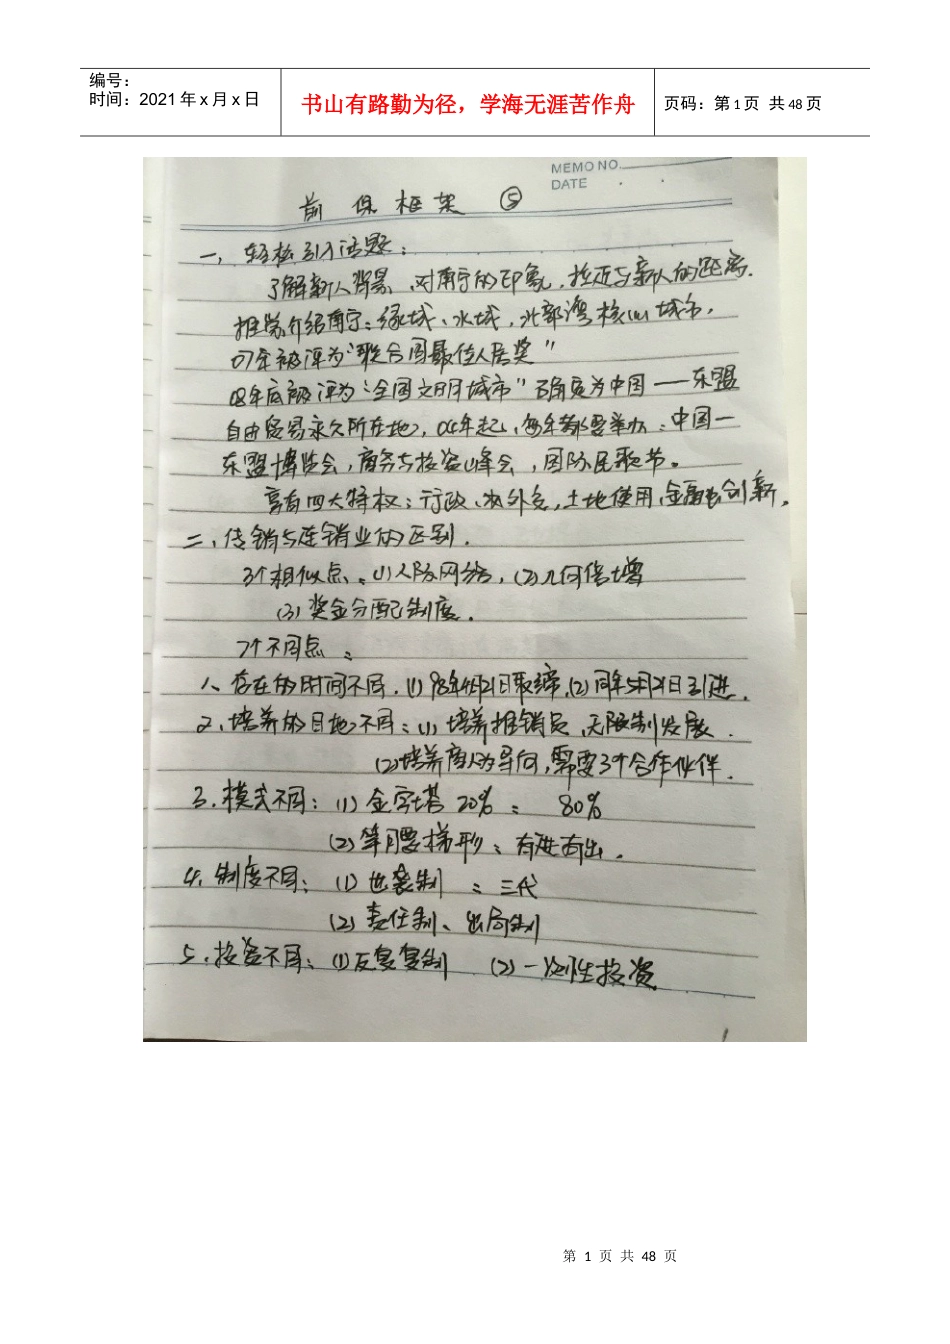 编号：
时间：2021年x月x日
书山有路勤为径，学海无涯苦作舟
页码：第1页 共48页
MEMO NO.
DATE
前保框架 ⑤
一、轻松引入话题：
了解新人背景、对南宁的印象，拉近与新人的距离.
推崇介绍南宁：绿城、水城，北部湾核心城市，
07年被评为"联合国最佳人居奖"
08年底被评为"全国文明城市"确定为中国——东盟
自由贸易永久所在地，04年起，每年都要举办：中国—
东盟博览会，商务与投资峰会，国际民歌节。
享有四大特权：行政、对外交，土地使用、金融创新。
二、传销与连销业的区别.
3个相似点：(1)人际网络，(2)几何倍增
(3)奖金分配制度.
7个不同点：
1、存在的时间不同.(1)98年4月21日取缔,(2)同年5月21日引进.
2、培养的目地不同：(1)培养推销员、无限制发展.
(2)培养商人为导向，需要3个合作伙伴.
3.模式不同：(1)金字塔 20%： 80%
(2)等腰梯形：有进有出.
4、制度不同：(1)世袭制：三代
(2)责任制、出局制
5.投资不同：(1)反复复制 (2)一次性投资.
1
第 1 页 共 48 页